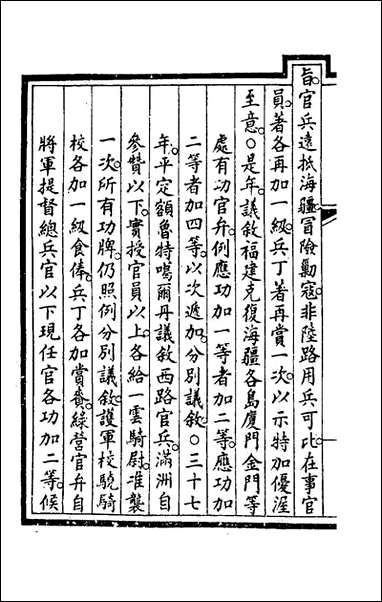 旨。官兵遠抵海疆。冒險勦寇。非陸路用兵可比。在事官
員。著各再加一級。兵丁著再賞一次。以示特加優渥
至意。○是年。議敘福建克復海疆各島厦門金門等
處有功官弁。例應功加一等者加二等。應功加
二等者加四等。以次遞加。分別議敘。○三十七
年。平定額魯特噶爾丹。議敘西路官兵。滿洲自
參贊以下。實授官員以上。各給一雲騎尉。准襲
一次。所有功牌。仍照例分別議敘。護軍校驍騎
校各加一級食俸。兵丁各加賞賚。綠營官弁自
將軍提督總兵官以下現任官各功加二等。候